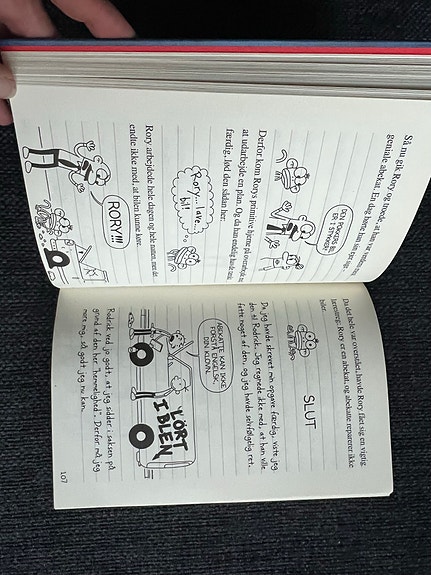 Så nu gik Rory og troede, at han var verdens
geniale abekat. En dag hørte han sin far sige:
DEN POKKERS BIL
ER I STYKKER!
Derfor kom Rorys primitive hjerne på overarbejde
at udarbejde en plan. Og da han endelig havde tænkt
færdig, lød den sådan her:
Rory... lave...
bil!
Rory arbejdede hele dagen og hele natten, men det
endte ikke med, at bilen kunne køre.
RORY!!!
Da det hele var overstået, havde Rory fået sig en vigtig
lærestreg: Rory er en abekat, og abekatte reparerer ikke
biler.
SLUT
Da jeg havde skrevet min opgave færdig, viste jeg
den til Rodrick. Jeg regnede ikke med, at han ville
fatte noget af den, og jeg havde selvfølgelig ret.
ABEKATTE KAN IKKE
FORSTÅ ENGELSK,
DIN KLOVN.
LØRT
I BLEN
Rodrick ved jo godt, at jeg sidder i saksen på
grund af den her "hemmelighed". Derfor må jeg
more mig, så godt jeg nu kan.
107